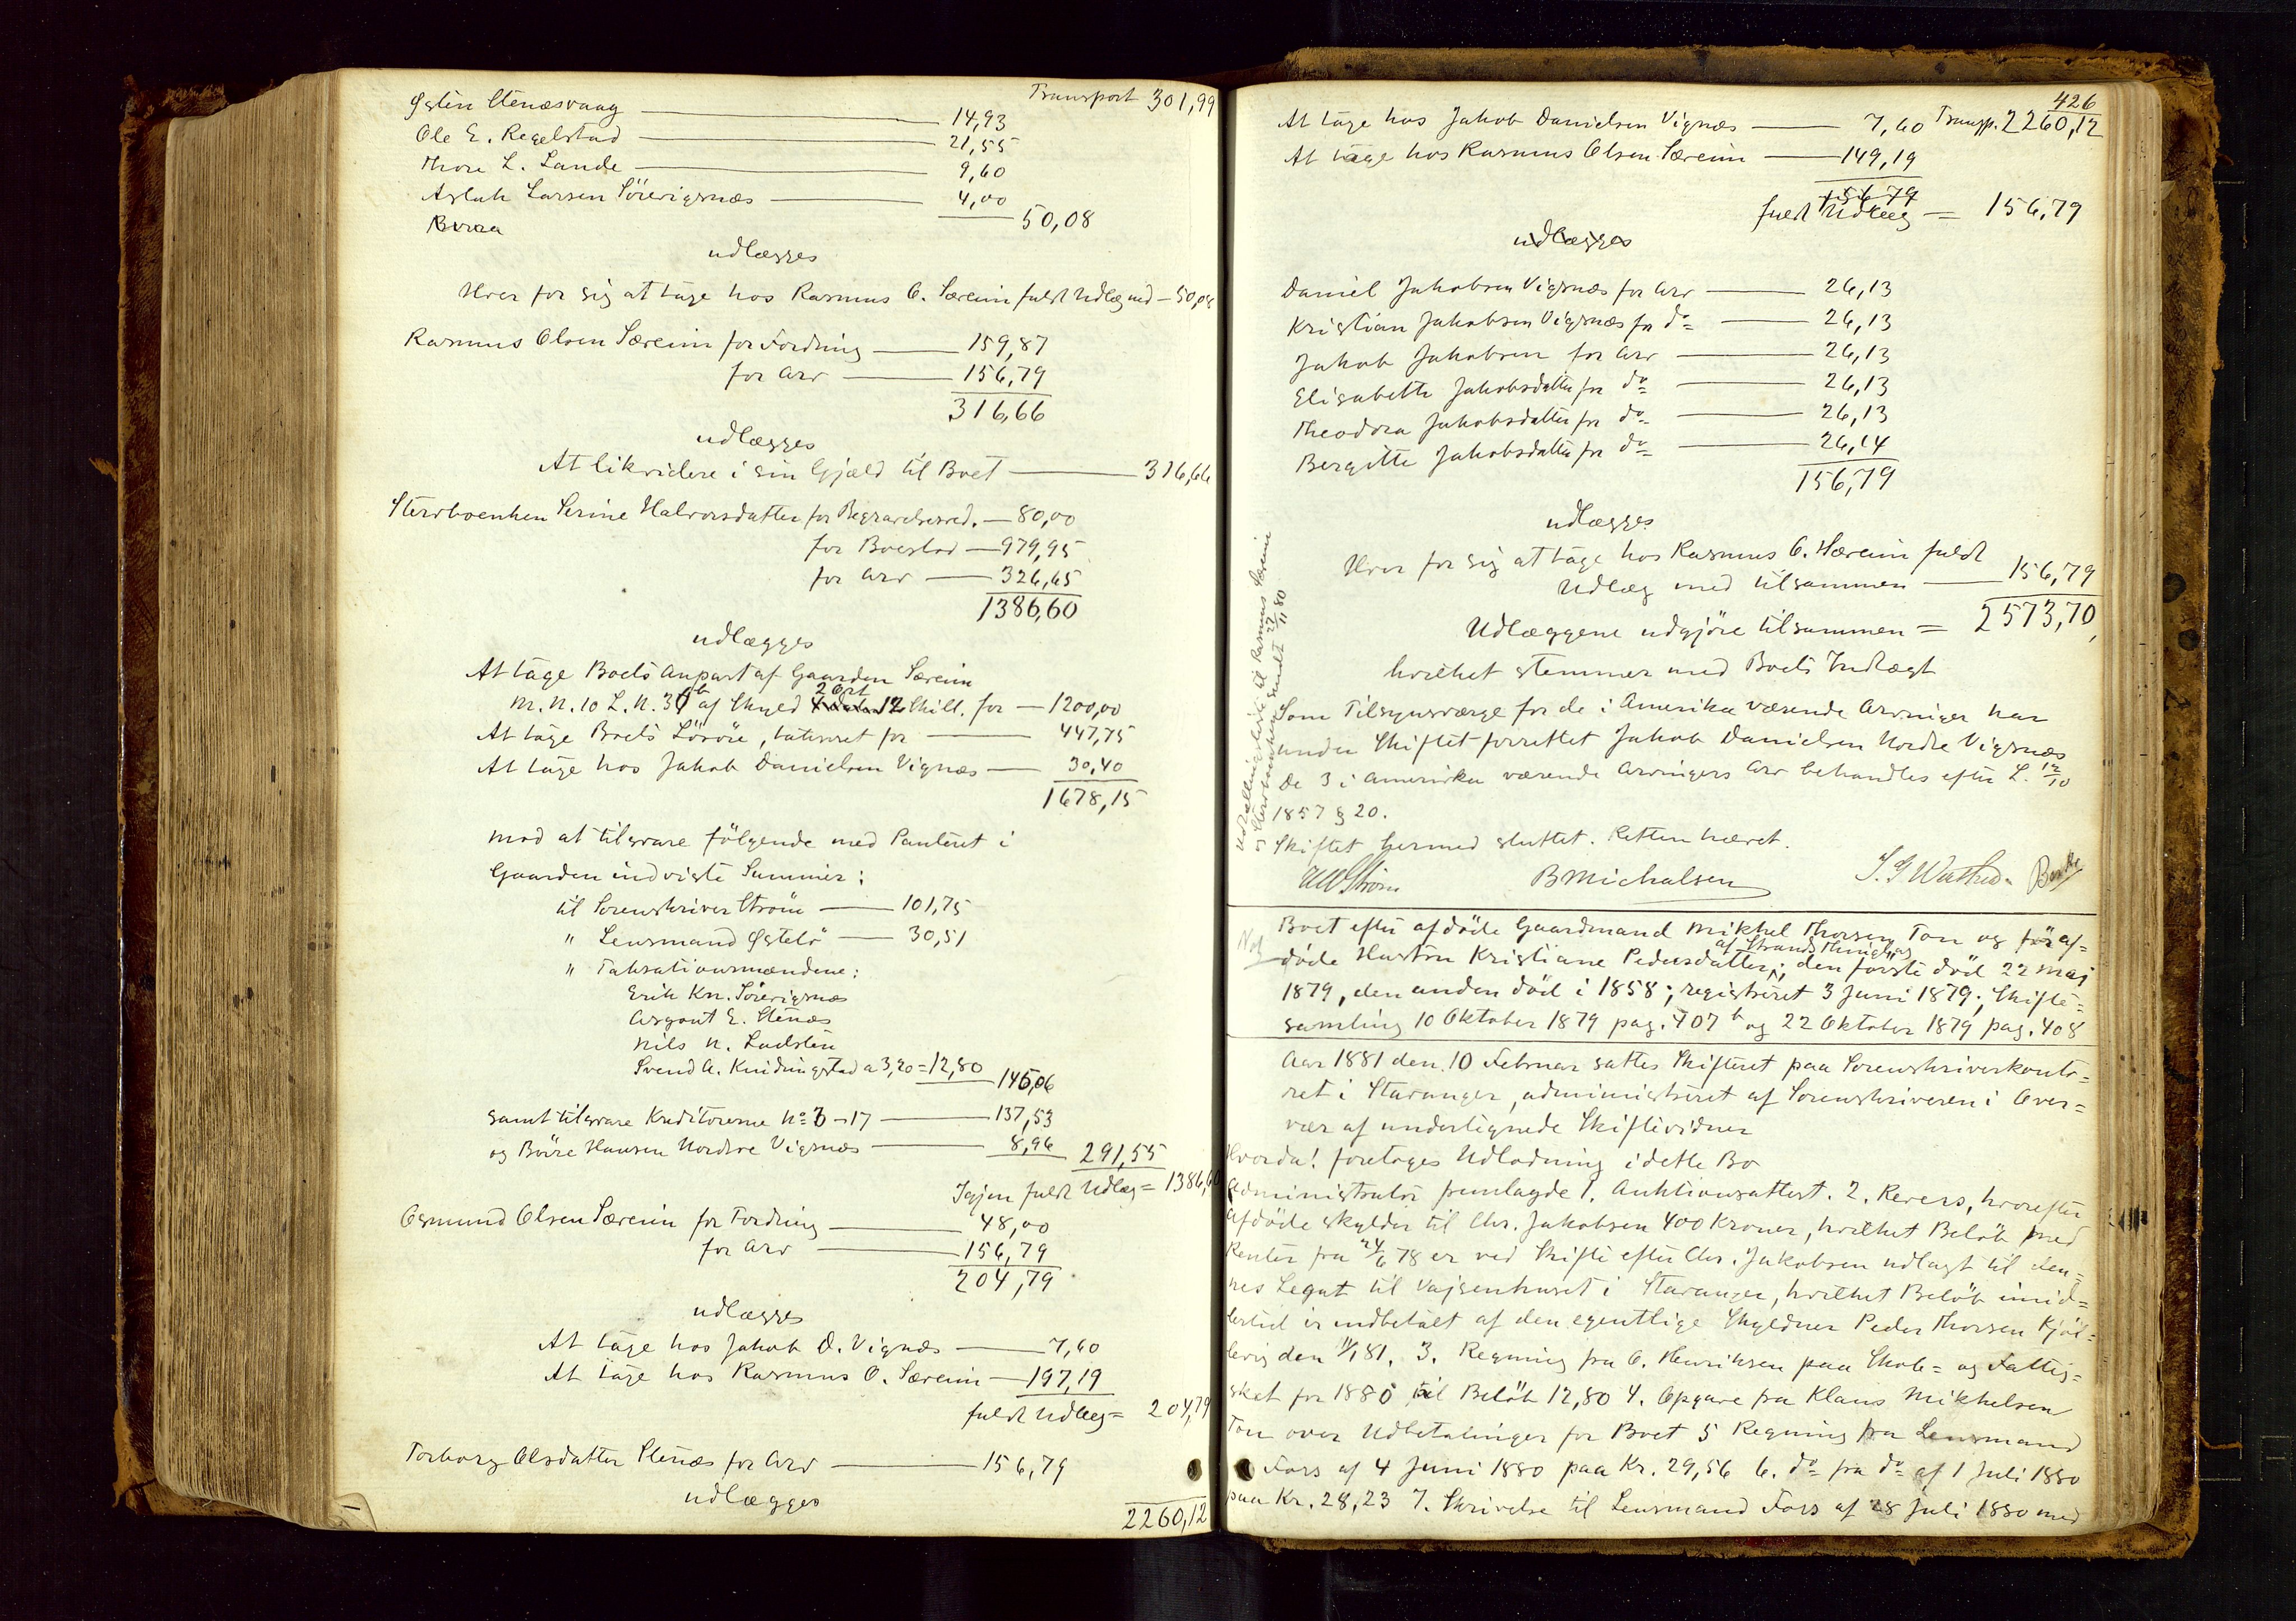 Transport 301,99
Østen Stenæsvaag — 14,93
Ole E. Regelstad — 21,55
Thore L. Lande — 9,60
Aslak Larsen Sörevigsnæs — 4,00
50,08
udlægges
Hver for sig at tage hos Rasmus O. Særeim fuldt Udlæg med — 50,08
Rasmus Olsen Særeim for Fordring — 159,87
for Arv — 156,79
316,66
udlægges
At likvidere i sin Gjæld til Boet — 316,66
Stervboenken Serine Halvorsdatter for Begravelsesved. — 80,00
for Boeslod — 979,95
for Arv — 326,65
1386,60
udlægges
At tage Boets Anpart af Gaarden Særeim
M.N. 10 L.N. 36b af Skyld 2 Ort 12 Skill. for — 1200,00
At tage Boets Lösöre, taxeret for — 447,75
At tage hos Jakob Danielsen Vignæs — 30,40
1678,15
mod at tilsvare fölgende med Panteret i
Gaarden indviste Summer:
til Sorenskriver Ström — 101,75
" Lensmand Østebö — 30,51
" Taksationsmændene:
Erik Kn. Sörevigsnæs
Asgout E. Stenæs
Nils N. Ladsten
Svend A. Knidringstad a 3,20 = 12,80
145,06
samt tilsvare Kreditorerne No 3 - 17 — 137,53
og Börre Hansen Nordre Vigsnæs — 8,96
291,55
Igjen fuldt Udlæg = 1386,60
Osmund Olsen Særeim for Fordring — 48,00
for Arv — 156,79
204,79
udlægges
At tage hos Jakob D. Vignæs — 7,60
At tage hos Rasmus O. Særeim — 197,19
fuldt Udlæg = 204,79
Torborg Olsdatter Stenæs for Arv — 156,79
udlægges
2260,12
426
At tage hos Jakob Danielsen Vignæs — 7,60 Transp. 2260,12
At tage hos Rasmus Olsen Særeim — 149,19
156,79
fuldt Udlæg = 156,79
udlægges
Daniel Jakobsen Vigsnæs for Arv — 26,13
Kristian Jakobsen Vigsnæs for do — 26,13
Jakob Jakobsen for Arv — 26,13
Elisabeth Jakobsdatter for do — 26,13
Theodora Jakobsdatter for do — 26,13
Bergitte Jakobsdatter for do — 26,14
156,79
udlægges
Hver for sig at tage hos Rasmus O. Særeim fuldt
Udlæg med tilsammen — 156,79
Udlæggene udgjöre tilsammen = 2573,70,
hvilket stemmer med Boets Indtægt
Som Tilsynsværge for de i Amerika værende Arvinger har
under Skiftet forrettet Jakob Danielsen Nordre Vigsnæs
De 3 i Amerika værende Arvingers Arv behandles efter L. 12/10
1857 § 20.
Skiftet hermed sluttet. Retten hævet.
B Michalsen
Boet efter afdöde Gaardmand Mikkel Thorsen Tou og föraf=
döde Hustru Kristiane Pedersdatter af Strands Thinglag; den förste död 22 Maj
1879, den anden död i 1858; registreret 3 Juni 1879; Skifte=
samling 10 Oktober 1879 pag. 407 b og 22 Oktober 1879 pag. 408
Aar 1881 den 10 Februar sattes Skifteret paa Sorenskriverkonto=
ret i Stavanger, administreret af Sorenskriveren i Over=
vær af underlignede Skiftevidner
Hvorda! foretages Udlodning i dette Bo
Administrator fremlagde 1. Auktionsattest. 2. Revers, hvorefter
Afdöde skylder til Chr. Jakobsen 400 Kroner, hvilket Belöb med
Renter fra 24/6 78 er ved Skifte efter Chr. Jakobsen udlagt til den=
nes Legat til Vajsenhuset i Stavanger, hvilket Belöb imid=
lertid er indbetalt af den egentlige Skyldner Peder Thorsen Kjöl=
levig den 11/1 81. 3. Regning fra O. Henriksen paa Skole= og Fattig=
skat for 1880 til Belöb 12,80 4. Opgave fra Klaus Mikkelsen
Tou over Udbetalinger for Boet 5 Regning fra Lensmand
Foss af 4 Juni 1880 paa Kr. 29,56 6. do fra do af 1 Juli 1880
paa Kr. 28,23 7. Skrivelse til Lensmand Foss af 28 Juli 1880 med